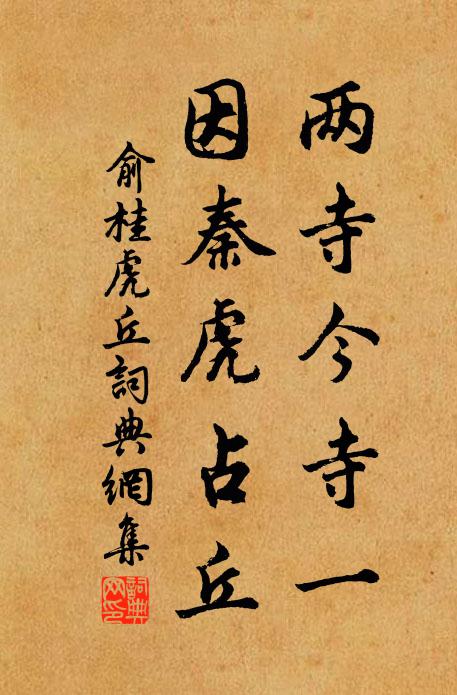 两寺今寺一
因秦虎占丘
俞桂虎丘詞典網集
詞典网印